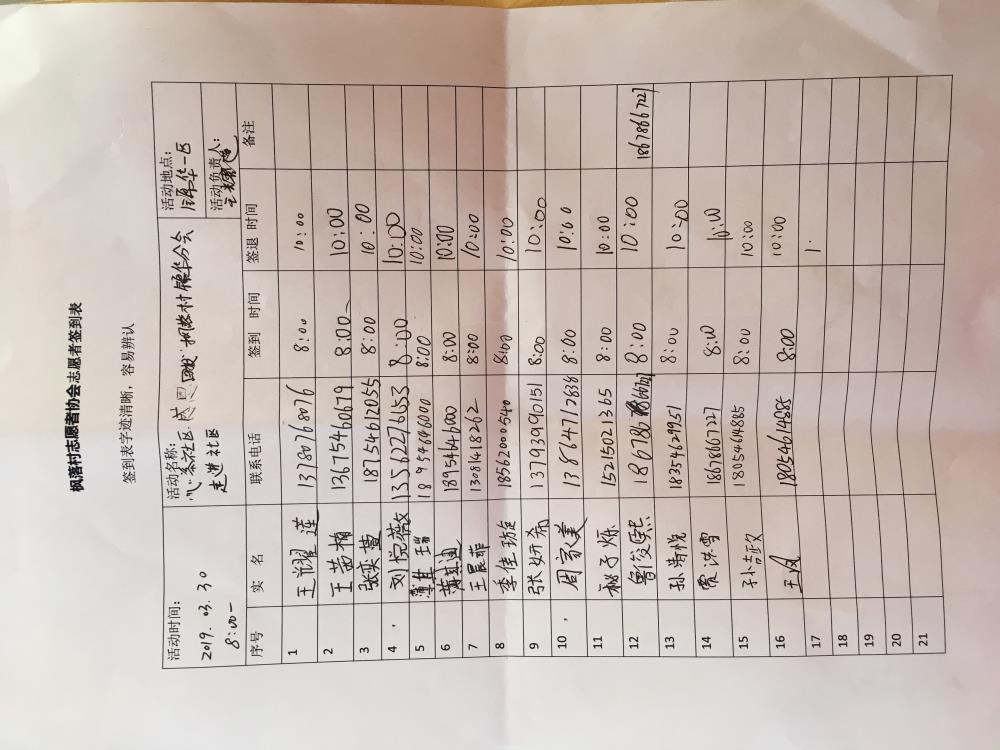 枫落村志愿者协会志愿者签到表
签到表字迹清晰，容易辨认
活动时间： 2019.03.30 8:00— 活动名称： 走进社区 活动地点： 锦华一区 活动负责人：
序号 实 名 联系电话 签到 时间 签退 时间 备注
1 王耀莲 13780768076 8:00 10:00
2 王茜楠 13675460679 8:00 10:00
3 张奕萱 18754612055 8:00 10:00
4 刘悦薇 13562271653 8:00 10:00
5 18954646000 8:00 10:00
6 18954646000 8:00 10:00
7 王晨菲 13081418262 8:00 10:00
8 李佳璇 18562000540 8:00 10:00
9 张妍希 13793990151 8:00 10:00
10 周家美 13864712838 8:00 10:00
11 子烁 15215021365 8:00 10:00
12 鲁俊熙 8:00 10:00 18678667227
13 孙靖悦 18354629951 8:00 10:00
14 贾洪雪 18678667227 8:00 10:00
15 孙吉政 18054614885 8:00 10:00
16 王凤 18054614885 8:00 10:00
17 1.
18
19
20
21